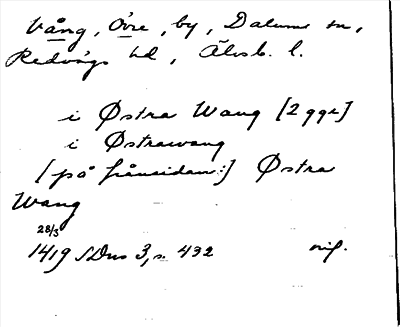 Vång, Övre, by, Dalums sn,
Redvägs hd, Älvsb. l.
i Østra Wang [2 ggr]
i Østrawang
[på frånsidan:] Østra
Wang
28/5
1419 SDns 3, s. 432 orig.